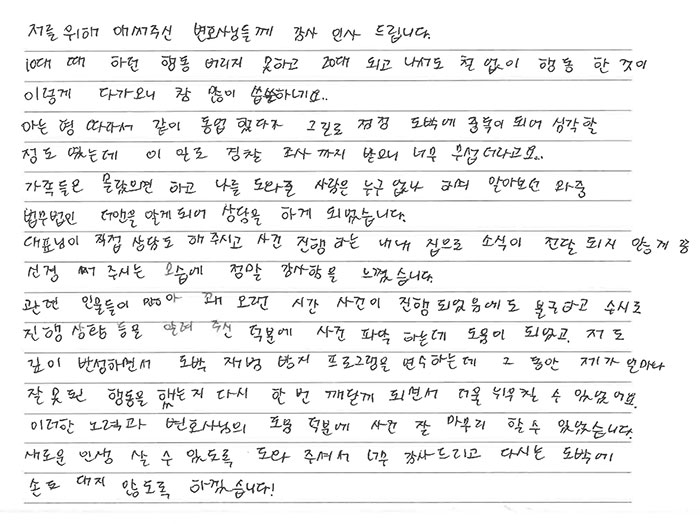 저를 위해 애써주신 변호사님들께 감사 인사 드립니다.
10대 때 하던 행동 버리지 못하고 20대 되고 나서도 철 없이 행동 한 것이
이렇게 다가오니 참 많이 씁쓸하네요..
아는 형 따라서 같이 동업 했다가 그길로 점점 도박에 중독이 되어 심각할
정도 였는데 이 일로 경찰 조사까지 받으니 너무 무섭더라고요..
가족들은 몰랐으면 하고 나를 도와줄 사람은 누구 없나 하며 알아보던 와중
법무법인 더앤을 알게 되어 상담을 하게 되었습니다.
대표님이 직접 상담도 해 주시고 사건 진행 하는 내내 집으로 소식이 전달 되지 않는게 끔
신경 써 주시는 모습에 정말 감사함을 느꼈습니다.
관련 인물들이 많아 꽤 오랜 시간 사건이 진행 되었음에도 불구하고 수시로
진행 상황 등을 알려 주신 덕분에 사건 파악 하는데 도움이 되었고, 저도
깊이 반성하면서 도박 재범 방지 프로그램을 연수하는데 그 동안 제가 얼마나
잘못된 행동을 했는지 다시 한 번 깨닫게 되면서 더욱 뉘우칠 수 있었어요.
이러한 노력과 변호사님의 도움 덕분에 사건 잘 마무리 할 수 있었습니다.
새로운 인생 살 수 있도록 도와 주셔서 너무 감사드리고 다시는 도박에
손도 대지 않도록 하겠습니다!